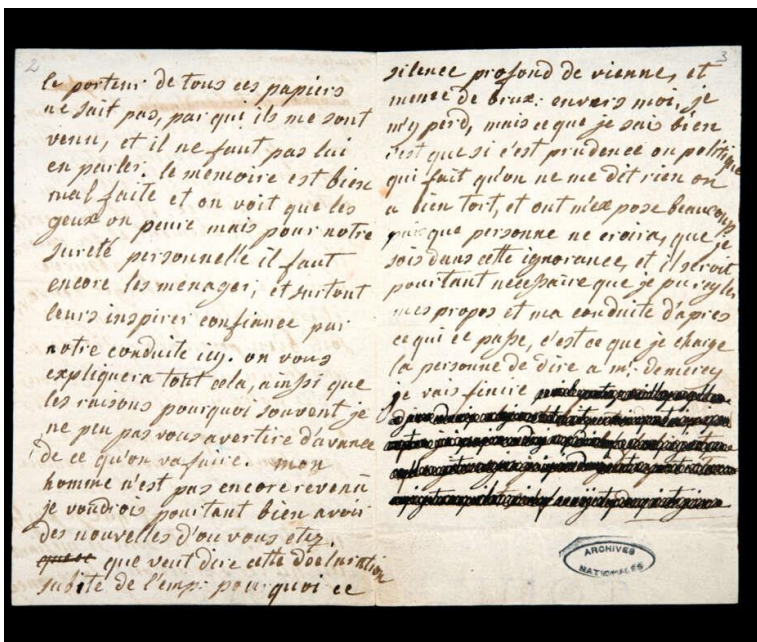 2
le porteur de tous ces papiers
ne sait pas, par qui ils me sont
venu, et il ne faut pas lui
en parler. le mémoire est bien
mal faite et on voit que les
geux on peure mais pour notre
sureté personnelle il faut
encore les menager, et surtout
leurs inspirer confiance par
notre conduite icy. on vous
expliquera tout cela, ainssi que
les raisons pourquoi souvent je
ne peu pas vous avertire d'avance
de ce qu'on va faire. mon
homme n'est pas encore revenü
je voudrois pourtant bien avoir
des nouvelles d'ou vous etez.
que veut dire cette declaration
subite de l'emp: pourquoi ce
3
silence profond de vienne, et
meme de brux: envers moi, je
m'y perd, mais ce que je sais bien
c'est que si c'est prudence ou politique
qui fait qu'on ne me dit rien on
a bien tort, et ont m'expose beaucoup
que personne ne croira, que je
sois dans cette ignorance, et il seroit
pourtant nécessaire que je
mes propos et ma conduite d'apres
ce qui ce passe, c'est ce que je charge
la personne de dire a mr. de mercy
je vais finire
ARCHIVES
NATIONALES